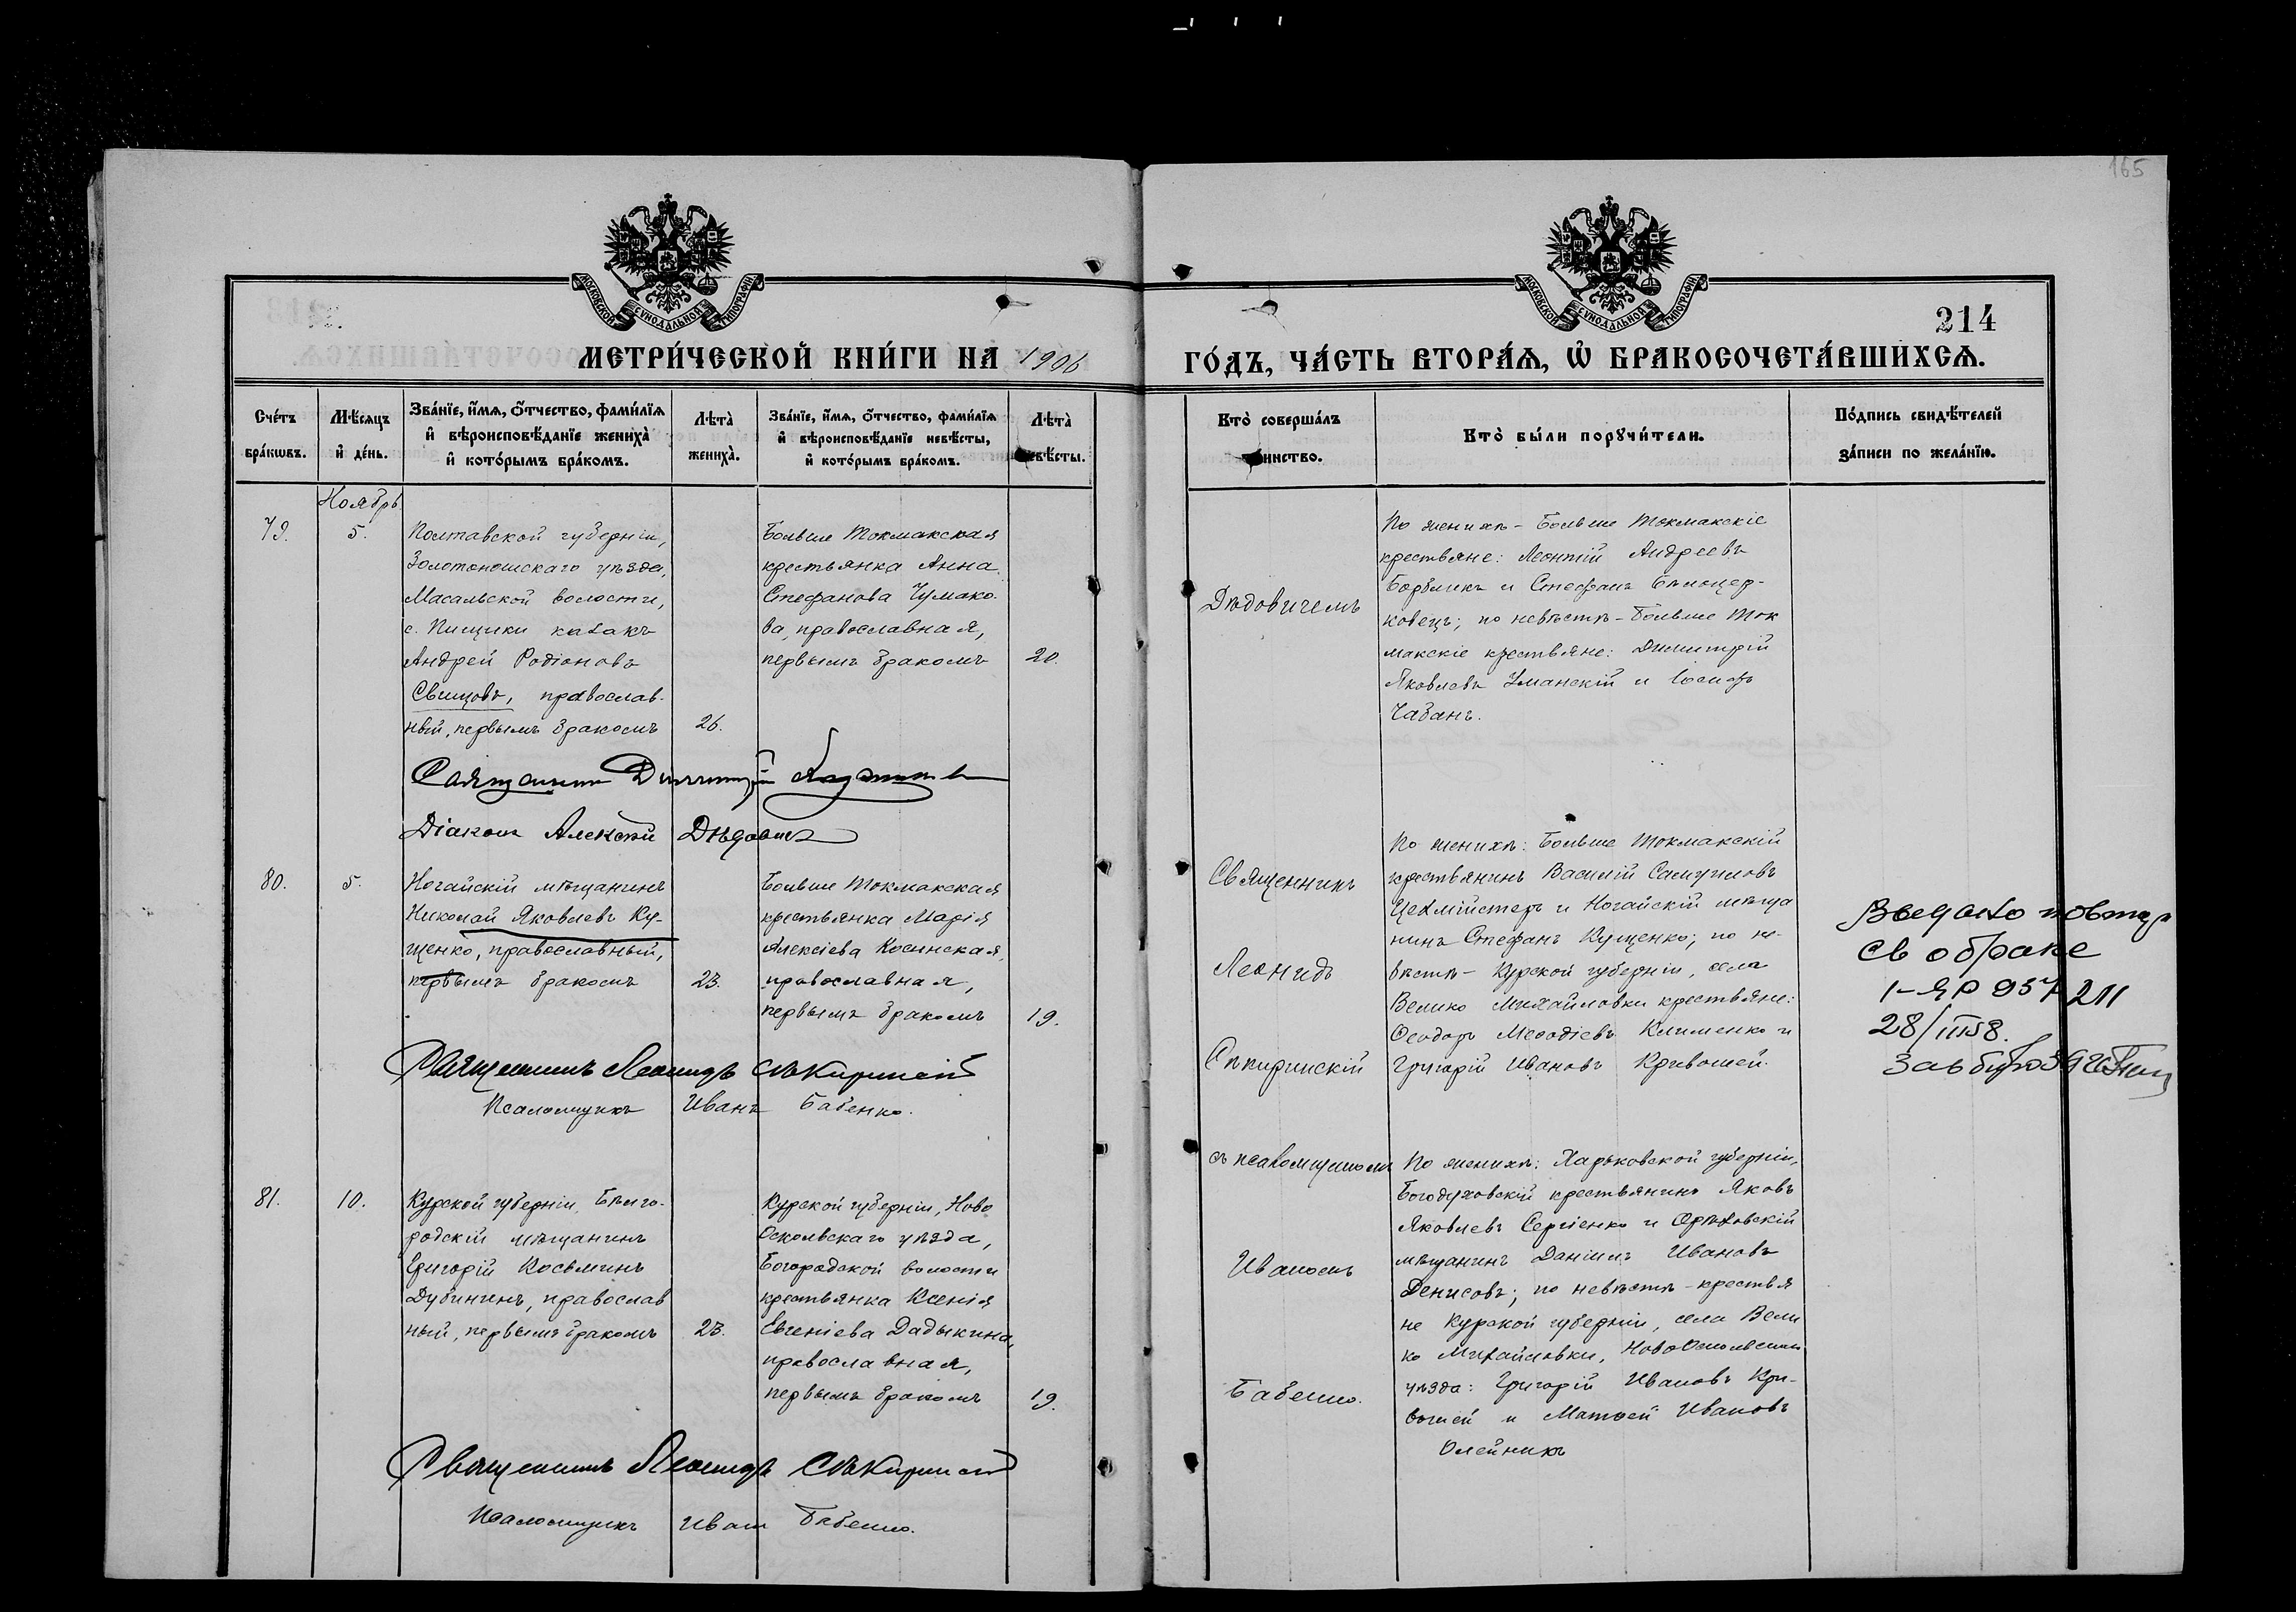 165
МОСКОВСКОЙ СѴНОДАЛЬНОЙ ТИПОГРАФІИ
МОСКОВСКОЙ СѴНОДАЛЬНОЙ ТИПОГРАФІИ
214
МЕТРИ́ЧЕСКОЙ КНИ́ГИ НА 1906
ГО́ДЪ, ЧА́СТЬ ВТОРА́Ѧ, Ѽ БРАКОСОЧЕТА́ВШИХСѦ.
Сче́тъ
бра́кѡвъ.
Мѣ́сѧцъ
и҆ де́нь.
Зва́нїе, и҆́мѧ, ѻ҆́тчество, фами́лїѧ
и҆ вѣроисповѣ́данїе жениха̀
и҆ кото́рымъ бра́комъ.
Лѣта̀
жениха̀.
Зва́нїе, и҆́мѧ, ѻ҆́тчество, фами́лїѧ
и҆ вѣроисповѣ́данїе невѣ́сты,
и҆ кото́рымъ бра́комъ.
Лѣта̀
невѣ́сты.
Кто̀ соверша́лъ
таинство.
Кто̀ бы́ли порꙋчи́тели.
По́дпись свидѣ́телей
за́писи по жела́нїю.
Ноябрь
79.
5.
Полтавской губерніи,
Золотоношскаго уѣзда,
Масальской волости,
с. Пищики казакъ
Андрей Родіоновъ
Свищовъ, православ-
ный, первымъ бракомъ
26.
Больше Токмакская
крестьянка Анна
Стефанова Чумако-
ва, православная,
первымъ бракомъ
20.
Дѣдовичемъ
По женихѣ - Больше Токмакскіе
крестьяне: Леонтій Андреевъ
Борбликъ и Стефанъ Бѣлоцер-
ковецъ; по невѣстѣ - Больше Ток
макскіе крестьяне: Димитрій
Яковлевъ Уманскій и Іосифъ
Чабанъ.
Священникъ Димитрій
Діаконъ Алексѣй Дѣдовичъ
80.
5.
Ногайскій мѣщанинъ
Николай Яковлевъ Ку-
щенко, православный,
первымъ бракомъ
23.
Больше Токмакская
крестьянка Марія
Алексіева Косинская,
православная,
первымъ бракомъ
19.
Священникъ
Леонидъ
Сѣкиринскій
По женихѣ: Больше Токмакскій
крестьянинъ Василій Самуиловъ
Цехмійстеръ и Ногайскій мѣща
нинъ Стефанъ Кущенко; по не-
вѣстѣ - Курской губерніи, села
Велико Михайловки крестьяне:
Ѳеодоръ Меѳодіевъ Клименко и
Григорій Ивановъ Кривошей.
Св о браке
1-ЯР 957211
28/III58.
Священникъ Леонидъ Сѣкиринскій
Псаломщикъ Иванъ Бабенко.
81.
10.
Курской губерніи, Бѣлго-
родскій мѣщанинъ
Григорій Косьминъ
Дубининъ, православ
ный, первымъ бракомъ
23.
Курской губерніи, Ново
Оскольскаго уѣзда,
Богородской волости
крестьянка Ксенія
Евгеніева Дадыкина,
православная,
первымъ бракомъ
19.
съ псаломщикомъ
Иваномъ
Бабенко.
По женихѣ: Харьковской губерніи,
Богодуховскій крестьянинъ Яковъ
Яковлевъ Сергіенко и Орѣховскій
мѣщанинъ Даніилъ Ивановъ
Денисовъ; по невѣстѣ - крестья
не Курской губерніи, села Вели
ко Михайловки, НовоОскольскаго
уѣзда: Григорій Ивановъ Кри-
вошей и Матвей Ивановъ
Олейникъ
Священникъ Леонидъ Сѣкиринскій
Псаломщикъ Иванъ Бабенко.